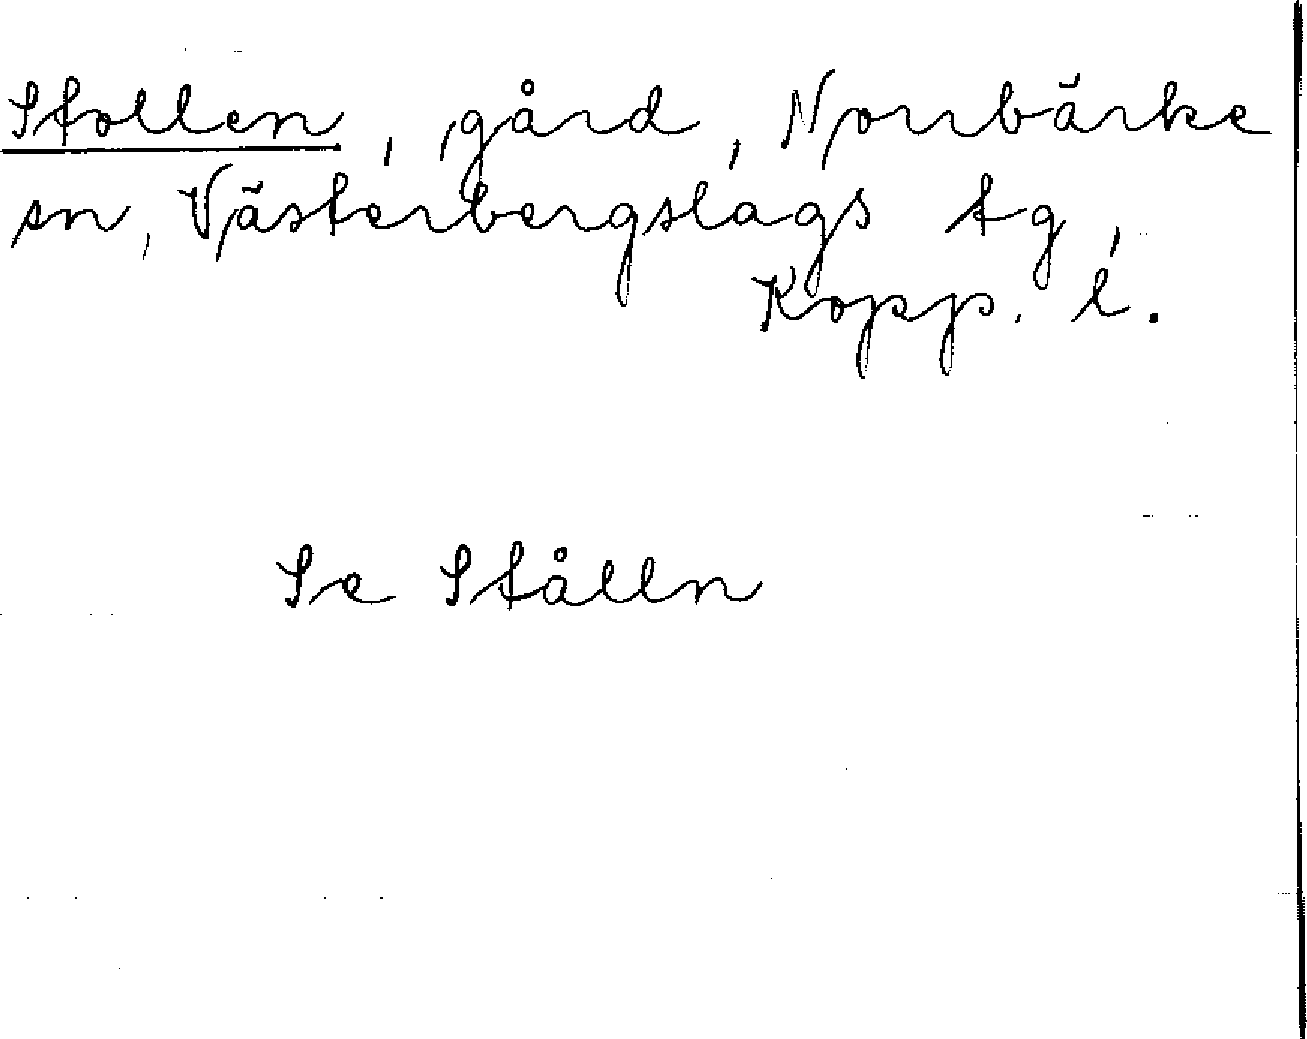 Stollen, gård, Norrbärke
sn, Västerbergslags tg,
Kopp. l.
Se Stålln